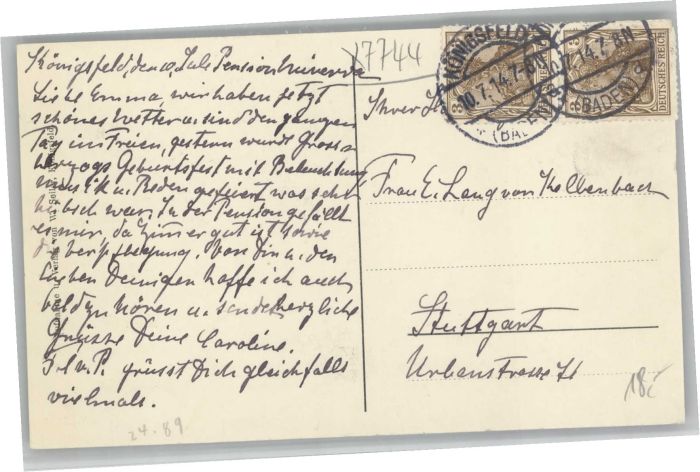 17744
KÖNIGSFELD
10.7.14.7-8N
(BADEN)
DEUTSCHES REICH
Königsfeld, den 10. Juli Pension Minerva
Liebe Emma, wir haben jetzt
schönes Wetter u. sind den ganzen
Tag im Freien, gestern wurde Gross-
herzogs Geburtsfest mit Beleuchtung
Musik u. Reden gefeiert was sehr
hübsch war. In der Pension gefällt
es mir, da Zimmer gut ist sowie
die Verpflegung. Von Dir u. den
lieben Deinigen hoffe ich auch
bald zu hören u. sende herzliche
Grüsse Deine Caroline.
grüsst Dich gleichfalls
vielmals.
Frau E. Lang von Kolbenbach
Stuttgart
Urbanstrasse
24.89